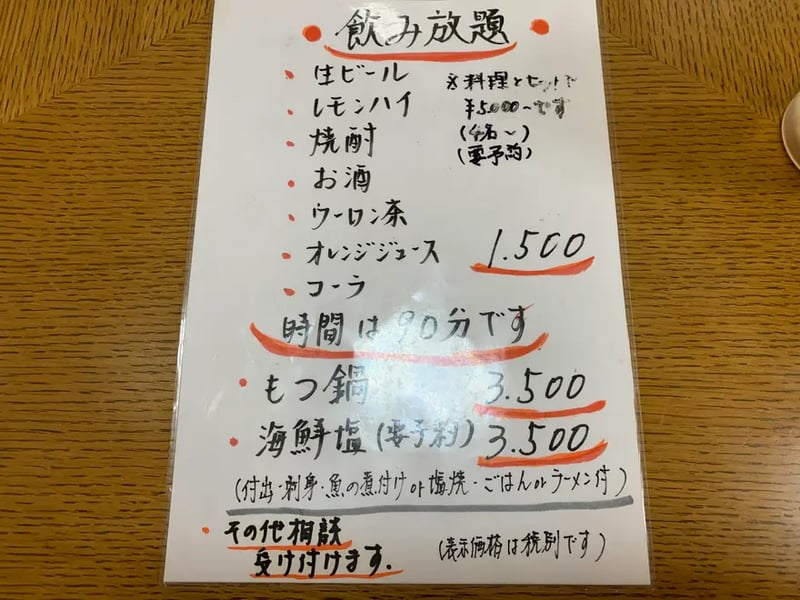 飲み放題
・生ビール
・レモンハイ
・焼酎
・お酒
・ウーロン茶
・オレンジジュース 1.500
・コーラ
※料理とセットで
¥5.000〜です
(4名〜)
(要予約)
時間は90分です
・もつ鍋 3.500
・海鮮塩(要予約) 3.500
(付出・刺身・魚の煮付けor塩焼・ごはんorラーメン付)
・その他相談
受け付けます.
(表示価格は税別です)